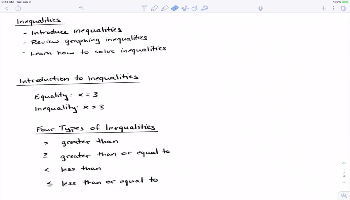 Inequalities
- Introduce inequalities
- Review graphing inequalities
- Learn how to solve inequalities
Introduction to Inequalities
Equality: x = 3
Inequality: x > 3
Four Types of Inequalities
> greater than
≥ greater than or equal to
< less than
≤ less than or equal to